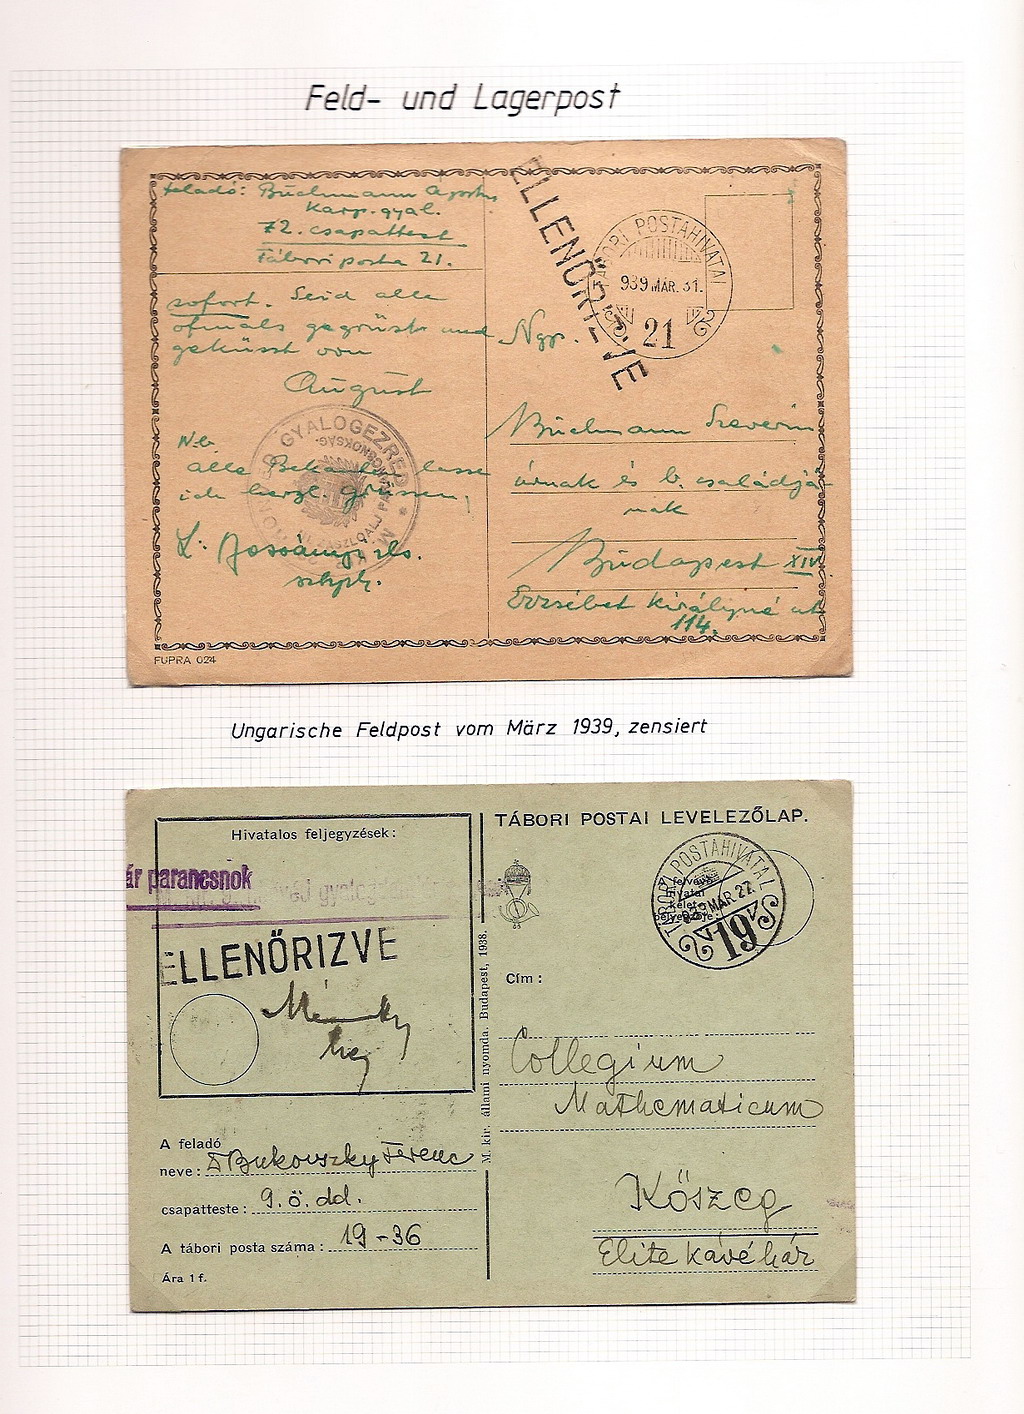 Feld- und Lagerpost
feladó: Buchmann
Karp. gyal.
72. csapattest
Tábori posta 21.
sofort. Seid alle
ofmals gegrüsst und
geküsst von
August
Nb.
alle lasse
ich herzl. grüssen,
ELLENŐRIZVE
TÁBORI POSTAHIVATAL
939 MÁR. 31.
21
GYALOGEZRED
Ngs.
Buchmann Szeverin
úrnak és b. családjá-
nak
Budapest XIV
Erzsébet királyné út
114.
FUPRA 024
Ungarische Feldpost vom März 1939, zensiert
Hivatalos feljegyzések:
ár parancsnok
ELLENŐRIZVE
A feladó
neve: Bukovszky Ferenc
csapatteste: 9. ö. dd.
A tábori posta száma: 19-36
Ára 1 f.
M. kir. állami nyomda. Budapest, 1938.
TÁBORI POSTAI LEVELEZŐLAP.
A felvevő
hivatal
kelet-
bélyegzője:
TÁBORI POSTAHIVATAL
939 MÁR. 27.
19
Cím:
Collegium
Mathematicum
Kőszeg
Elite kávéház